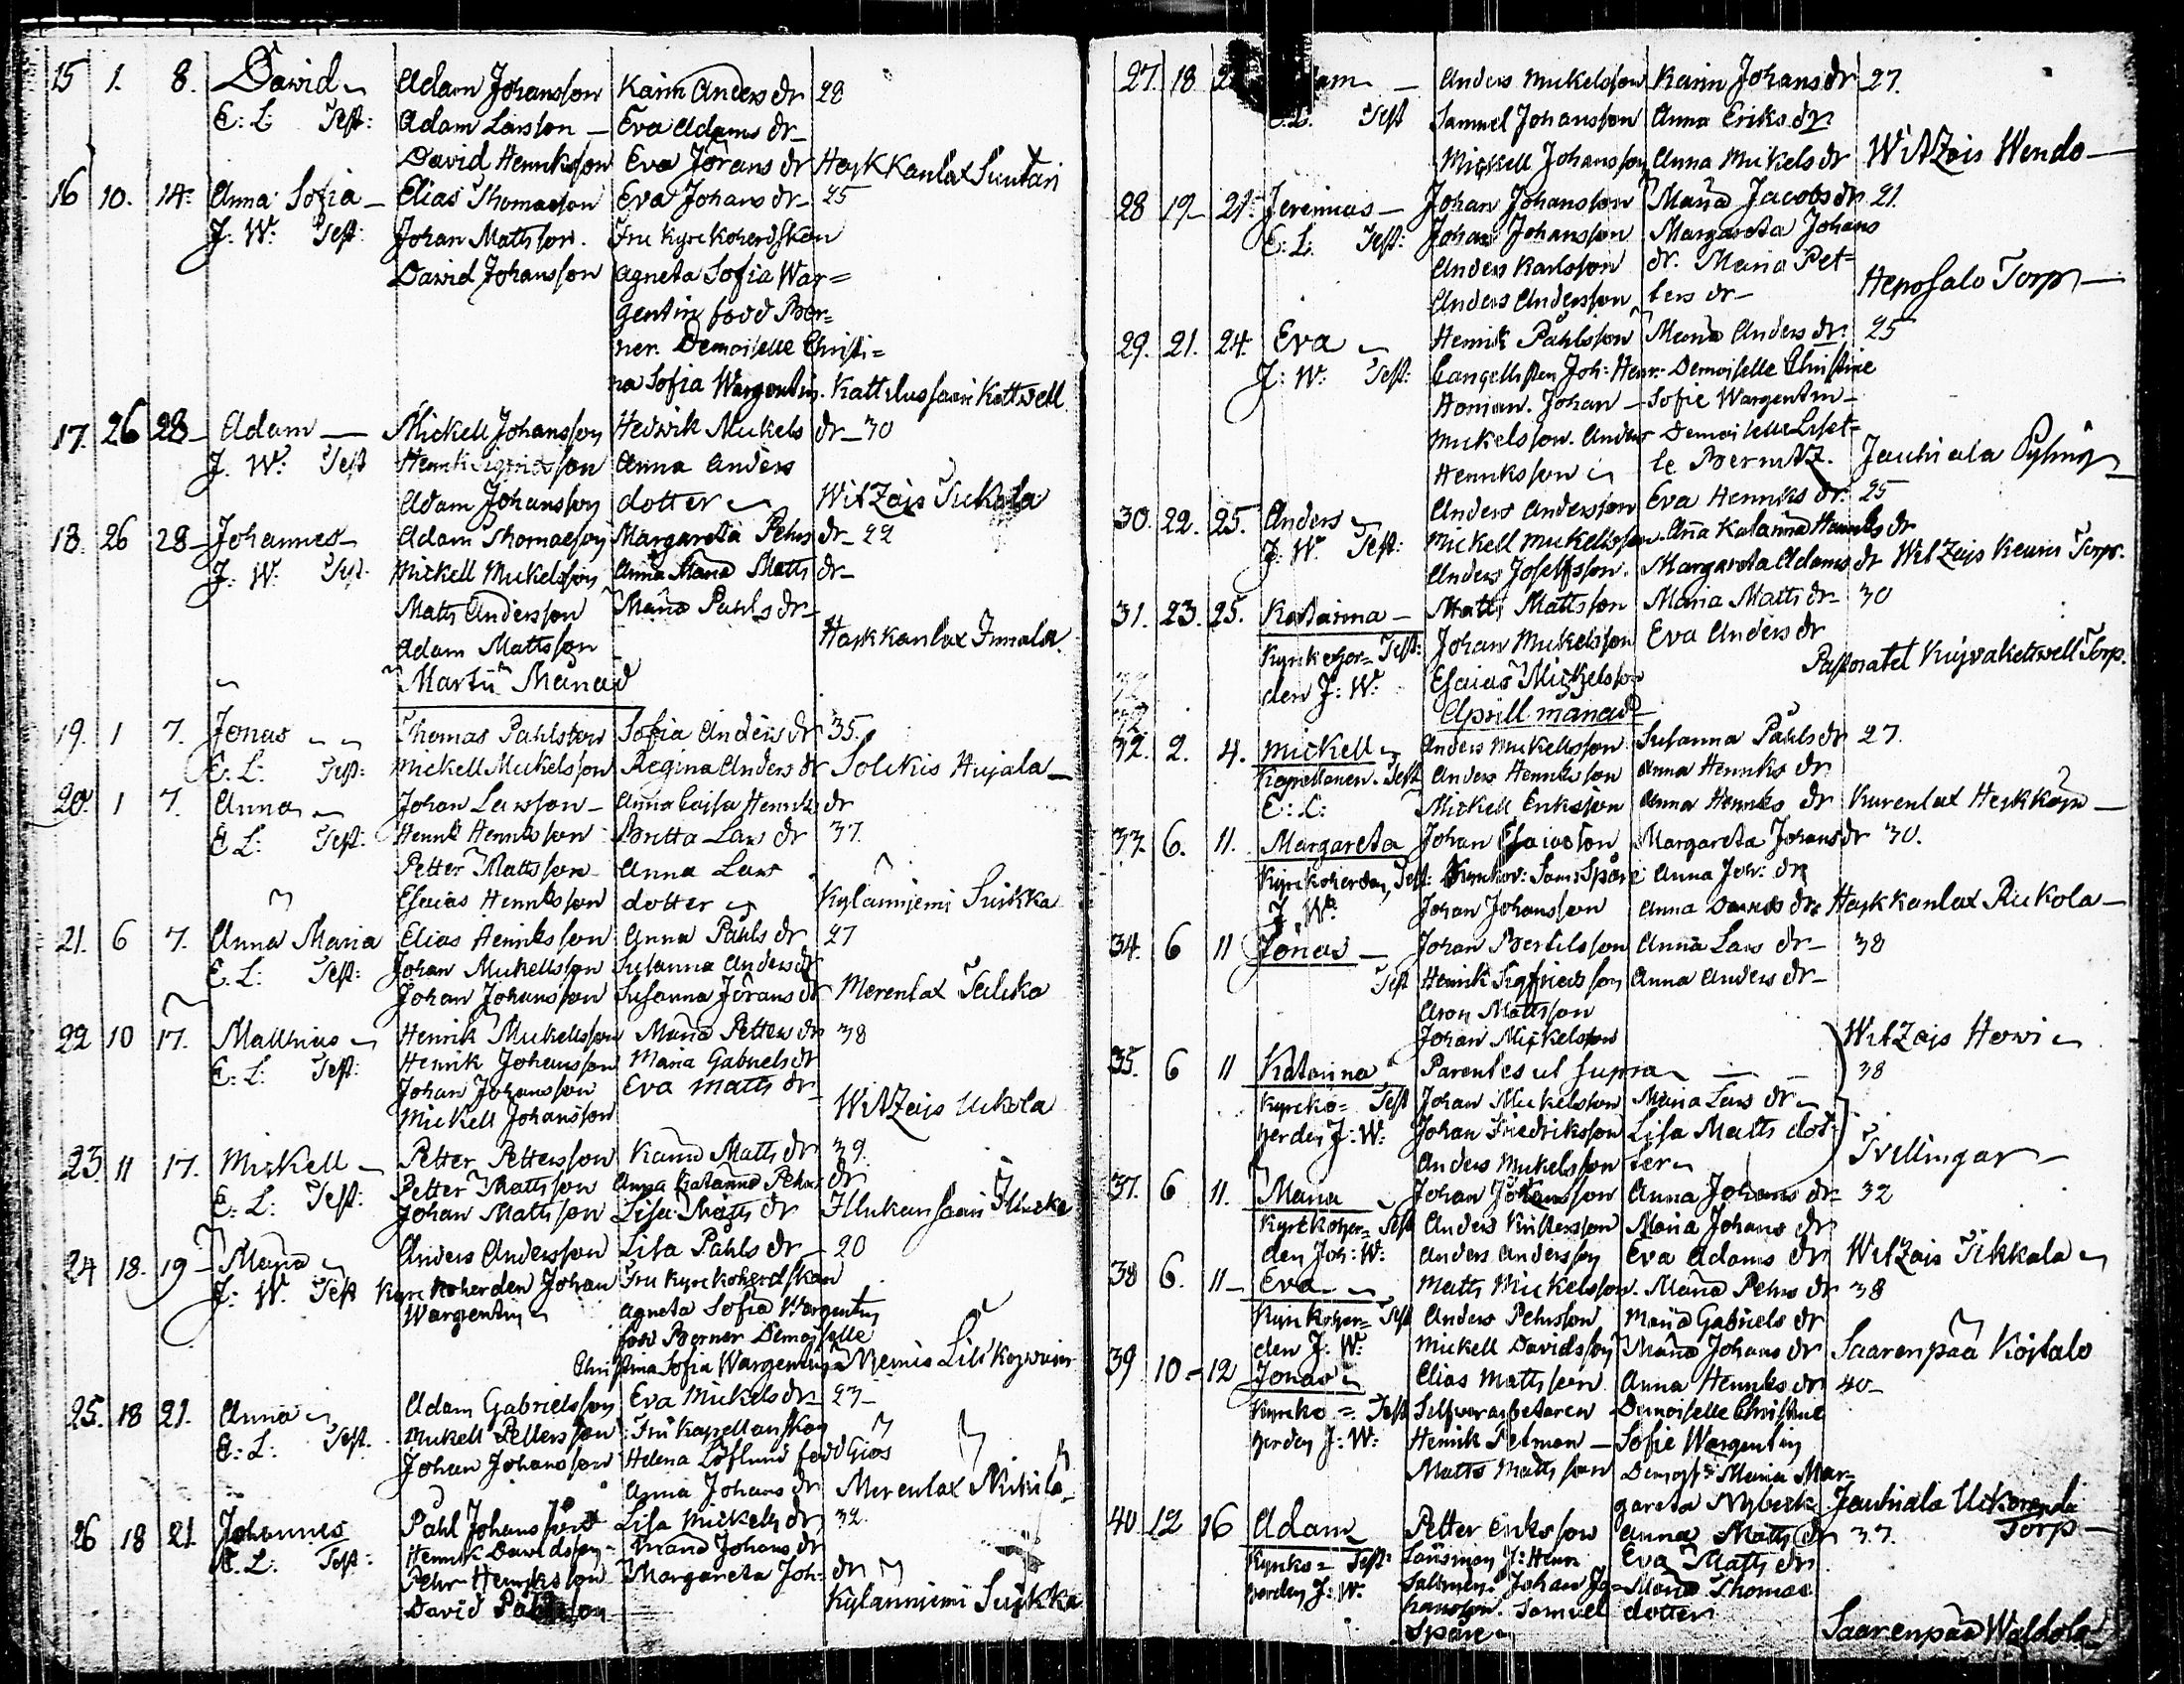 15 1. 8. David Adam Johansson Karin Anders dr 28
E: L: Test: Adam Larsson Eva Adams dr
David Henriksson Eva Jörans dr Haskkanlax Suutari
16 10. 14. Anna Sofia Elias Thomasson Eva Johans dr 25
J: W: Test: Johan Mattsson. Fru Kyrckoherdskan
David Johansson Agneta Sofia War=
gentin född Ber=
ner. Demoiselle Christi=
na Sofia Wargentin. Kattelussaari Kattwell
17. 26 28 Adam Mickell Johansson Hedwik Mickels dr 30
J. W: Test Henrik Sigfridsson Anna Anders
Adam Johansson dotter WitZais Tukala
18. 26 28 Johannes Adam Thomasson Margareta Pehrs dr 22
J: W: Test Mickell Mickelsson Anna Maria Matts dr
Matts Andersson Maria Pahls dr
Adam Mattsson Haskkanlax Immala
Martii Månad
19. 1 7. Jonas Thomas Pahlsson Sofia Anders dr 35.
E: L: Test: Mickell Mickelsson Regina Anders dr Solckis Hujala
20. 1 7. Anna Johan Larsson Anna Caisa Henriks dr
E L: Test: Henrik Henriksson Britta Lars dr 37.
Petter Mattsson Anna Lars
Esaias Henriksson dotter Kylänniemi Suikka
21. 6 7. Anna Maria Elias Henriksson Anna Påhls dr 27
E: L: Test: Johan Mickellsson Susanna Anders dr
Johan Johansson Susanna Jörans dr Merenlax
22 10 17. Matthias Henrik Mickellsson Maria Petters dr 38
E: L: Test: Henrik Johansson Maria Gabriels dr
Johan Johansson Eva Matts dr
Mickell Johansson WitZais Uckola
23 11 17. Mickell Petter Pettersson Karin Matts dr 39.
E: L: Test: Petter Mattsson Anna Katarina Pehrs dr
Johan Mattsson Lisa Matts dr Illukansaari Illucka
24 18. 19 Maria Anders Andersson Lisa Pahls dr 20
J: W. Test Kyrckoherden Johan Fru Kyrckoherdskan
Wargentin Agneta Sofia Wargentin
född Berner Demoiselle
Christina Sofia Wargentin Niemis
25. 18 21. Anna Adam Gabrielsson Eva Mickels dr 27
E: L: Test. Mickell Pettersson Fru Kapellanskan
Johan Johansson Helena Löflund född Gios
Anna Johans dr Merenlax Nikila
26 18 21 Johannes Påhl Johansson Lisa Mickels dr 32
E. L: Test: Henrik Davidsson Maria Johans dr
Pehr Henriksson Margareta Joh: dr
David Påhlsson Kylänniemi Suikka
27. 18 Anders Mickelsson Karin Johans dr 27.
E. L. Test Samuel Johansson Anna Eriks dr
Mickell Johansson Anna Mickels dr WitZais Wendo
28 19 21. Jeremias Johan Johansson Maria Jacobs dr 21.
E: L: Test: Johan Johansson Margareta Johans
Anders Karlsson dr. Maria Pet=
Anders Andersson ters dr Heposalo Torp
29. 21. 24. Eva Henrik Påhlsson Maria Anders dr. 25
J: W: Test: Cancellisten Joh: Henr: Demoiselle Christine
Homan. Johan Sofie Wargentin
Mickelsson. Anders Demoiselle Liset=
Henriksson te Bernitz. Jauhiala
30. 22. 25. Anders Anders Andersson Eva Henriks dr: 25
J: W. Test: Mickell Mickellsson Ana Katarina Henriks dr
Anders Josefsson. Margareta Adams dr WitZais Keurin Torp.
31. 23. 25. Katarina Matts Mattsson Maria Matts dr 30
Kyrckoher= Test: Johan Mickelsson Eva Anders dr
den J: W: Esaias Mickelsson Pastoratet Torp.
Aprill månad
32. 2. 4. Mickell Anders Mickellsson Susanna Påhls dr 27.
Kapellanen. Test Anders Henriksson Anna Henriks dr
E: L: Mickell Eriksson Anna Henriks dr Kurenlax
33. 6. 11. Margareta Johan Esaiasson Margareta Johans dr 30.
Kyrckoherden Test: Anna Joh: dr
J W: Johan Johansson Anna Davids dr Haskkanlax Ruckola
34. 6 11 Jonas Johan Bertilsson Anna Lars dr 38
Test Henrik Sigfriedsson Anna Anders dr
Aron Mattsson
Johan Mickelsson WitZais Howi
35. 6 11 Katarina Parentes ut supra 38
Kyrcko= Test Johan Mickelsson Maria Lars dr
herden J: W: Johan Friedriksson Lisa Matts dot=
Anders Mickelsson ter Tvillingar
37. 6 11. Maria Johan Johansson Anna Johans dr 32
Kyrckoher= Test Anders Maria Johans dr
den Joh: W: Anders Andersson Eva Adams dr WitZais Tikkala
38 6. 11 Eva Matts Mickelsson. Maria Pehrs dr 38
Kyrckoher= Test Anders Pehrsson Maria Gabriels dr
den J: W: Mickell Davidsson Maria Johans dr Saarenpää Koitalo
39 10 12 Jonas Elias Mattsson Anna Henriks dr 40
Kyrcko= Test Silfverarbetaren Demoiselle Christine
herden J: W: Henrik Petman Sofie Wargentin
Matts Mattsson Demois: Maria Mar=
gareta Nybeck Jauhiala
Torp
40 12 16 Adam Petter Eriksson Anna Matts dr 37.
Kyrcko= Test: Länsman J: Henr Eva Matts dr
herden J: W. Johan Jo= Maria Thomas
hansson. Samuel dotter
Späre Saarenpää